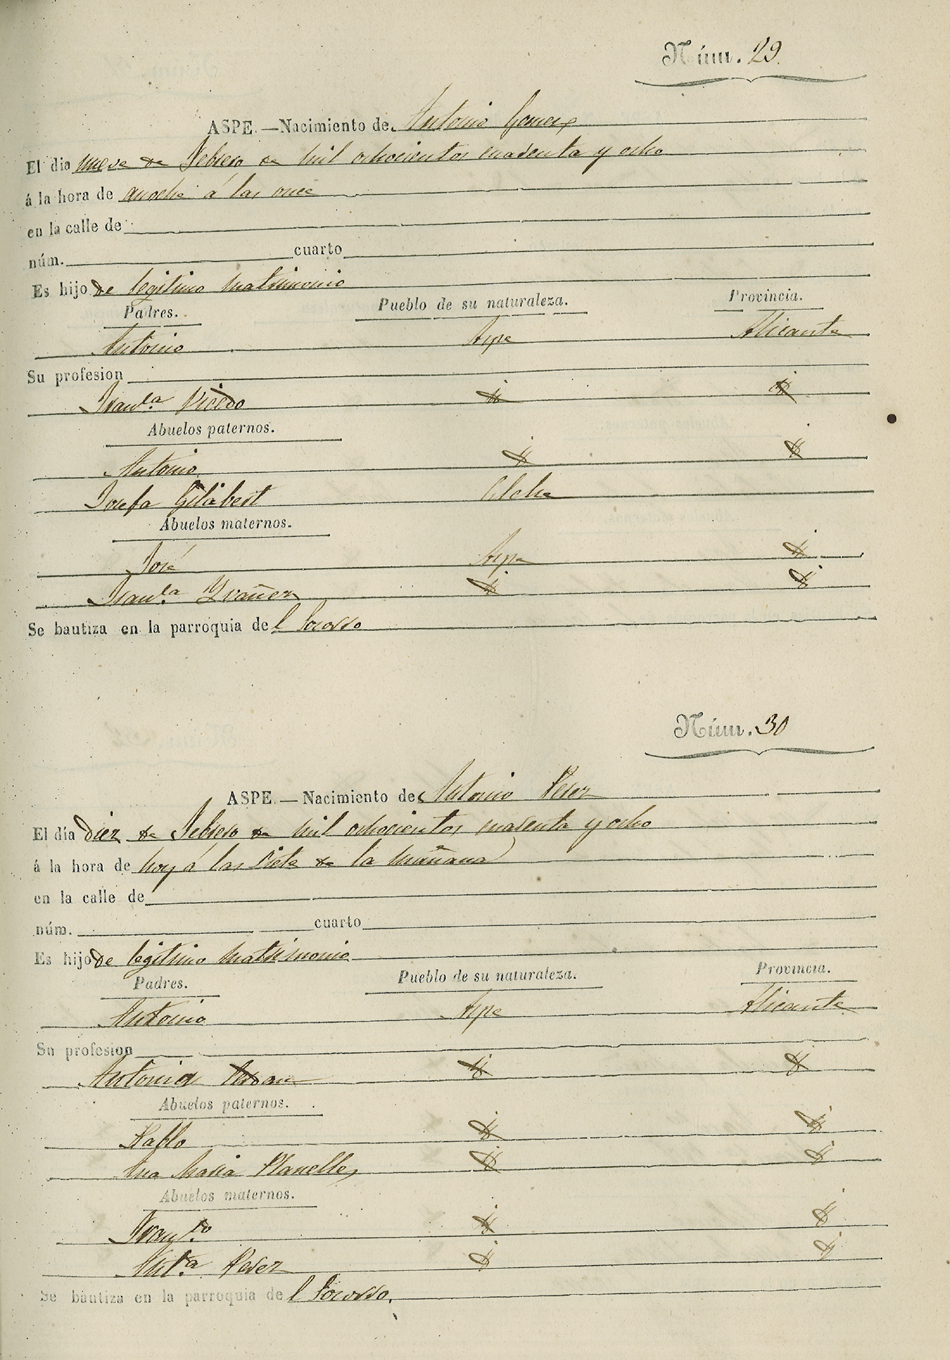 Núm. 29
ASPE.—Nacimiento de Antonio Gomez
El dia nueve de Febrero de mil ochocientos cuarenta y ocho
á la hora de anoche á las once
en la calle de
núm. cuarto
Es hijo de legitimo matrimonio
Padres. Pueblo de su naturaleza. Provincia.
Antonio Aspe Alicante
Su profesion
Franca Picedo
Abuelos paternos.
Antonio
Josefa Gilabert Elche
Abuelos maternos.
José Aspe
Franca Yvañez
Se bautiza en la parroquia del Socorro
Núm. 30
ASPE.—Nacimiento de Antonio Perez
El día diez de Febrero de mil ochocientos cuarenta y ocho
á la hora de hoy á las siete de la mañana
en la calle de
núm. cuarto
Es hijo de legitimo matrimonio
Padres. Pueblo de su naturaleza. Provincia.
Antonio Aspe Alicante
Su profesion
Antonia
Abuelos paternos.
Pablo
Ana Maria Planelles
Abuelos maternos.
Franco
Anta Perez
Se bautiza en la parroquia del Socorro.